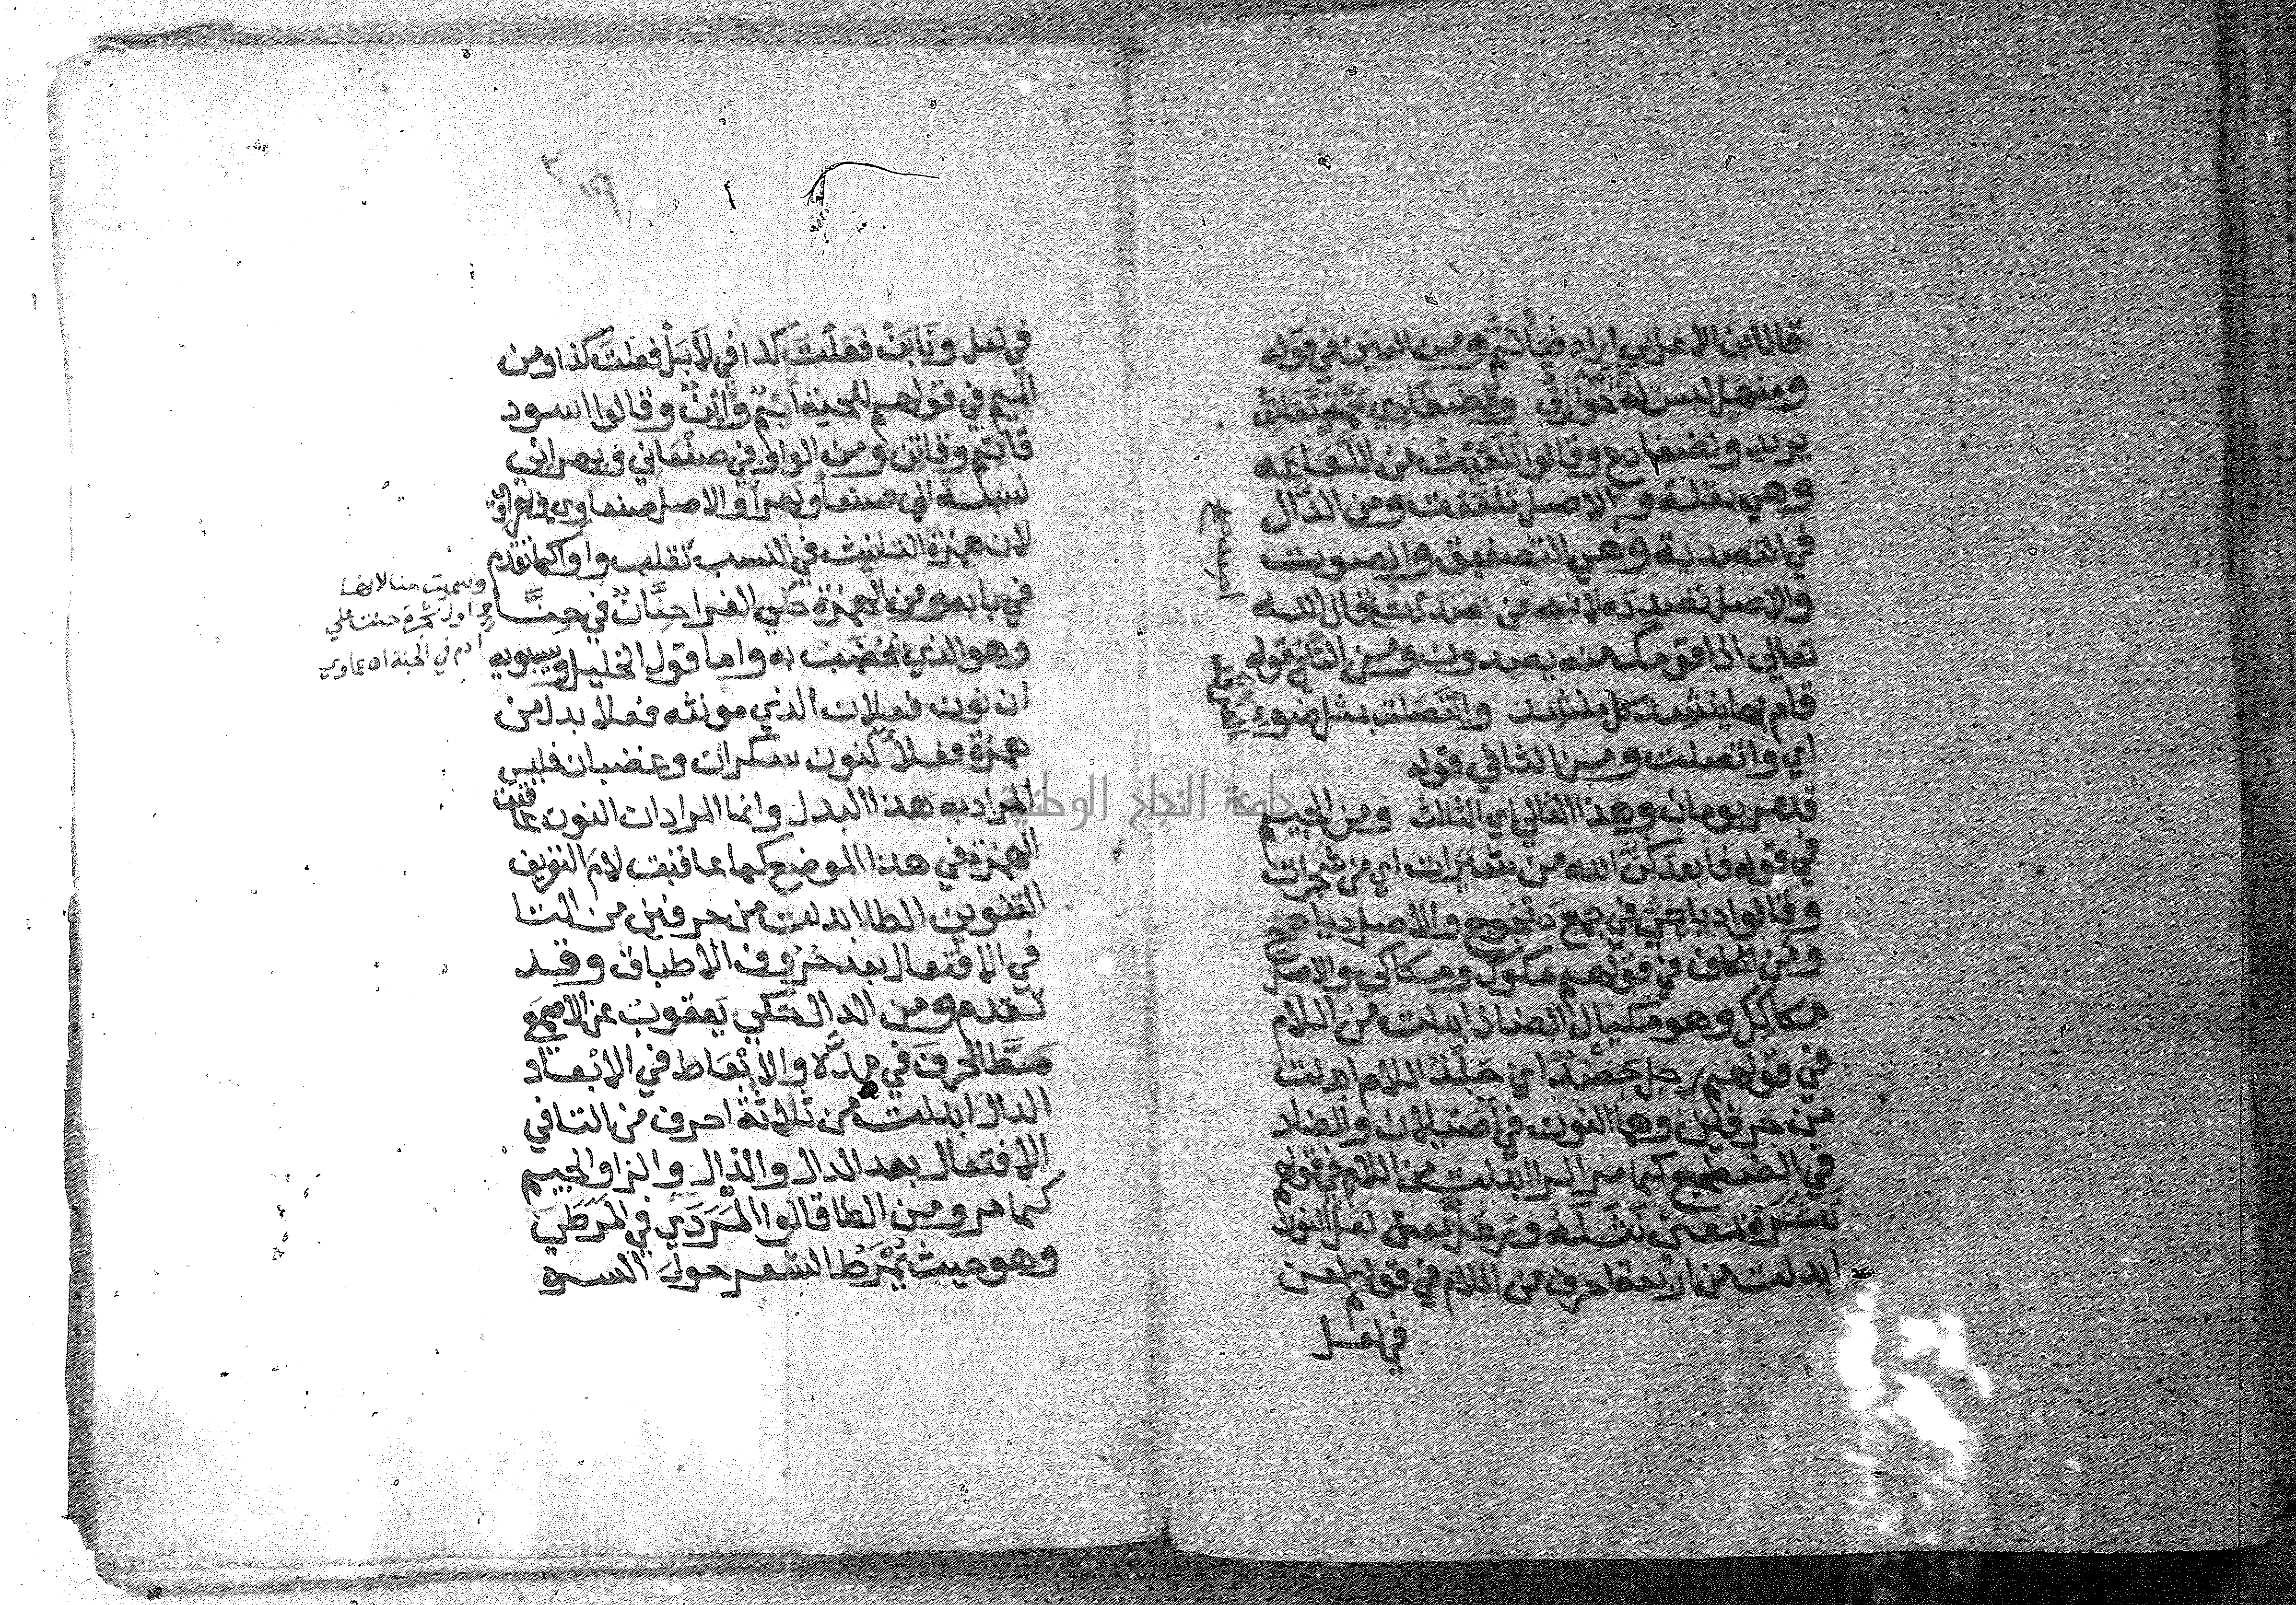 قال ابن الاعرابي اراد فيأتم ومن العين في قوله
ومنهل ليس له حوازق ولضفادي جمه نقانق
يريد ولضفادع وقالوا تلعيت من اللعاعه
وهي بقلة والاصل تلععت ومن الدال
في التصدية وهي التصفيق والصوت
والاصل تصدده لانه من صددت قال الله
تعالي اذا قومك منه يصدون ومن التا في قوله
قام بها ينشد كل منشد وايتصلت بمثل ضوء
اي واتصلت ومن الثا في قوله
قد مر يومان وهذا الثالي اي الثالث ومن الجيم
في قوله فابعدكن الله من شيرات اي من شجرات
وقالوا دياجي في جمع ديجوج والاصل دياجيج
ومن الكاف في قولهم مكوك ومكاكي والاصل
مكاكك وهو مكيال الضاد ابدلت من اللام
في قولهم رجل جضد اي جلد اللام ابدلت
من حرفين وهما النون في أصيلان والضاد
في اضطجع كما مر الرا ابدلت من اللام في قولهم
نثرة بمعني نثلة ورعل بمعني لعل النون
ابدلت من اربعة احرف من اللام في قولهم لعن
في لعل
في لعل ونابن فعلت كذا في لابل فعلت كذا ومن
الميم في قولهم للحية أيم وأين وقالوا اسود
قاتم وقاتن ومن الواو في صنعاني وبهراني
نسبة الي صنعا وبهرا والاصل صنعاوي وبهراوي
لان همزة التانيث في النسب تقلب واوا كما تقدم
في بابه ومن الهمزة حكي الفرا حنان في حنا
وهو الذي يخضب به واما قول الخليل وسيبويه
ان نون فعلان الذي مونثه فعلا بدل من
همزة فعلا كنون سكران وغضبان فليس
المراد به هذا البدل وانما المراد ان النون عاقبت
الهمزة في هذا الموضع كما عاقبت لام التعريف
التنوين الطا ابدلت من حرفين من التا
في الافتعال بعد حروف الاطباق وقد
تقدم ومن الدال حكي يعقوب عن الاصمعي
مط الحرف في مده والابعاط في الابعاد
الدال ابدلت من ثلاثة احرف من التا في
الافتعال بعد الدال والذال والزا والجيم
كما مر ومن الطا قالوا المردي في المرطي
وهو حيث يمرط الشعر حول السره
وسميت حنا لانها
اول شجرة حنت علي
ادم في الجنة اه
جامعة النجاح الوطنية